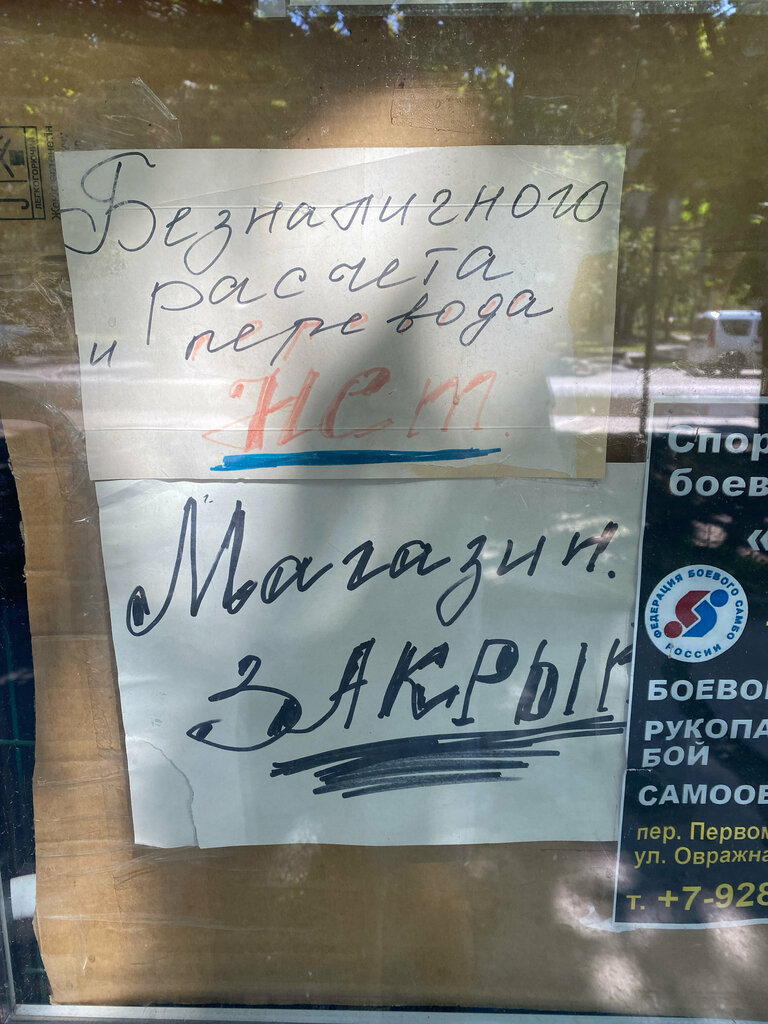 Безналичного
расчета
и перевода
нет.
Магазин.
ЗАКРЫТ
ЛЕГКОГОРЮЧ
Спор
боев
«
ФЕДЕРАЦИЯ БОЕВОГО САМБО
РОССИИ
БОЕВО
РУКОПА
БОЙ
САМООБ
пер. Первом
ул. Овражна
т. +7-928